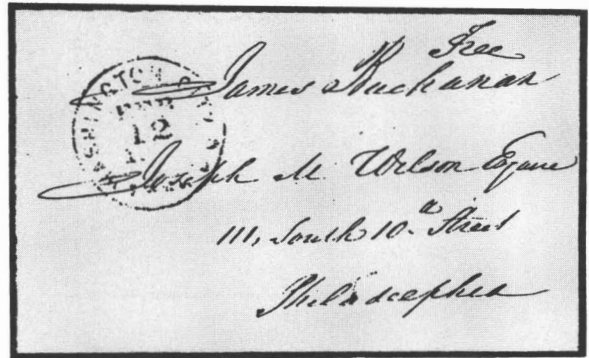 Free
James Buchanan
WASHINGTON
FEB
12
Joseph M Wilson Esquire
111, South 10. Street
Philadelphia